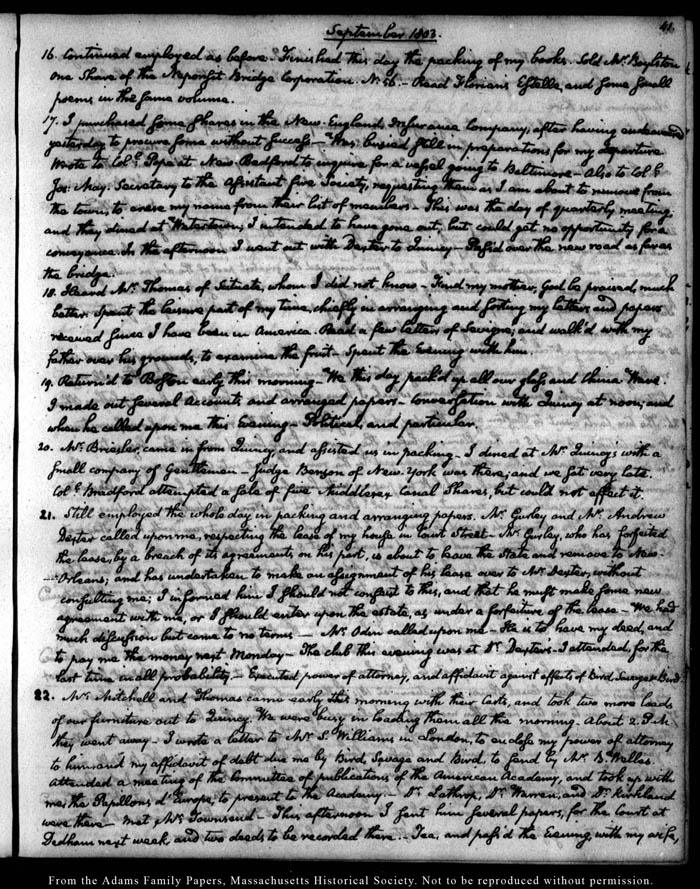 September 1803.
41.
16. Continued employed as before. Finished this day the packing of my books. Sold Mr. Boylston
one Share of the Neponset Bridge Corporation. N. 56. — Read Florian's Estelle, and some small
poems, in the same volume.
17. I purchased some shares in the New-England Insurance Company, after having endeavoured
yesterday to procure some without success — Was busied still in preparations for my departure
Wrote to Col.l Pope at New-Bedford to inquire for a vessel going to Baltimore — Also to Col.l
Jos. May. Secretary to the Assistant fire Society, requesting them as I am about to remove from
the town, to erase my name from their list of members — This was the day of quarterly meeting,
and they dined at Watertown; I intended to have gone out, but could get no opportunity for a
conveyance. In the afternoon I went out with Dexter to Quincy — Pass'd over the new road as far as
the bridge.
18. Heard Mr. Thomas of Scituate, whom I did not know — Find my mother, God be praised, much
better. Spent the leisure part of my time, chiefly in arranging and sorting my letters and papers
received since I have been in America. Read a few letters of Sevigne; and walk'd with my
father over his grounds, to examine the fruit — Spent the Evening with him.
19. Return'd to Boston early this morning — We this day pack'd up all our glass and China Ware.
I made out several Accounts and arranged papers — Conversation with Quincy at noon; and
when he called upon me this Evening — Political, and particular.
20. Mr. Briesler, came in from Quincy, and assisted us in packing — I dined at Mr. Quincy's with a
small company of Gentlemen — Judge Benson of New-York was there; and we sat very late.
Col.l Bradford attempted a sale of five Middlesex Canal Shares, but could not effect it.
21. Still employed the whole day in packing and arranging papers. Mr. Gurley and Mr. Andrew
Dexter called upon me, respecting the lease of my house in Court Street — Mr. Gurley, who has forfeited
the lease, by a breach of its agreements on his part, is about to leave the State and remove to New-
Orleans; and has undertaken to make an assignment of his lease over to Mr. Dexter, without
consulting me; I informed him I should not consent to this, and that he must make some new
agreement with me, or I should enter upon the estate, as under a forfeiture of the lease — We had
much discussion but came to no terms — Mr. Odin called upon me — He is to have my deed, and
to pay me the money next Monday — The club this evening was at Dr. Dexter's. I attended, for the
last time in all probability. — Executed power of attorney, and affidavit against effects of Bird, Savage & Bird.
22. Mrs. Mitchell and Thomas came early this morning with their Carts, and took two more loads
of our furniture out to Quincy. We were busy in loading them all the morning. About 2. P.M.
they went away — I wrote a letter to Mr. S. Williams in London, to enclose my power of attorney
to him, and my affidavit of debt due me by Bird, Savage and Bird, to send by Mr. B. Welles.
Attended a meeting of the Committee of publications of the American Academy, and took up with
me, the Papillons d'Europe, to present to the Academy — Dr. Lathrop, Dr. Warren, and Dr. Kirkland
were there — Met Mr. Townsend — This afternoon I sent him several papers, for the Court at
Dedham next week, and two deeds to be recorded there. Tea, and pass'd the Evening, with my wife,
From the Adams Family Papers, Massachusetts Historical Society. Not to be reproduced without permission.